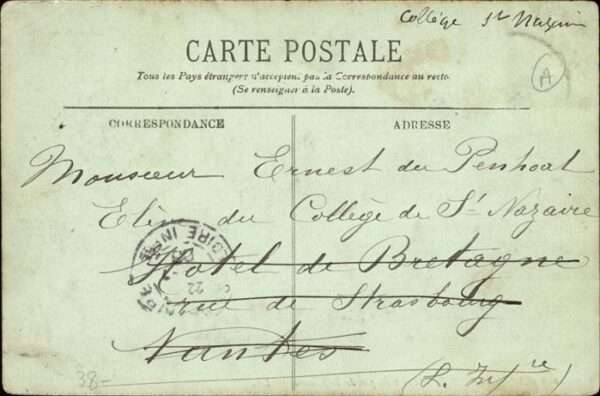 Collège St Nazaire
CARTE POSTALE
Tous les Pays étrangers n'acceptent pas la Correspondance au recto
(Se renseigner à la Poste).
A
CORRESPONDANCE
ADRESSE
Monsieur Ernest du Penhoat
Elève du Collège de St Nazaire
Hotel de Bretagne
rue de Strasbourg
Nantes
(L. Infre)
LOIRE INFRE
22
38-